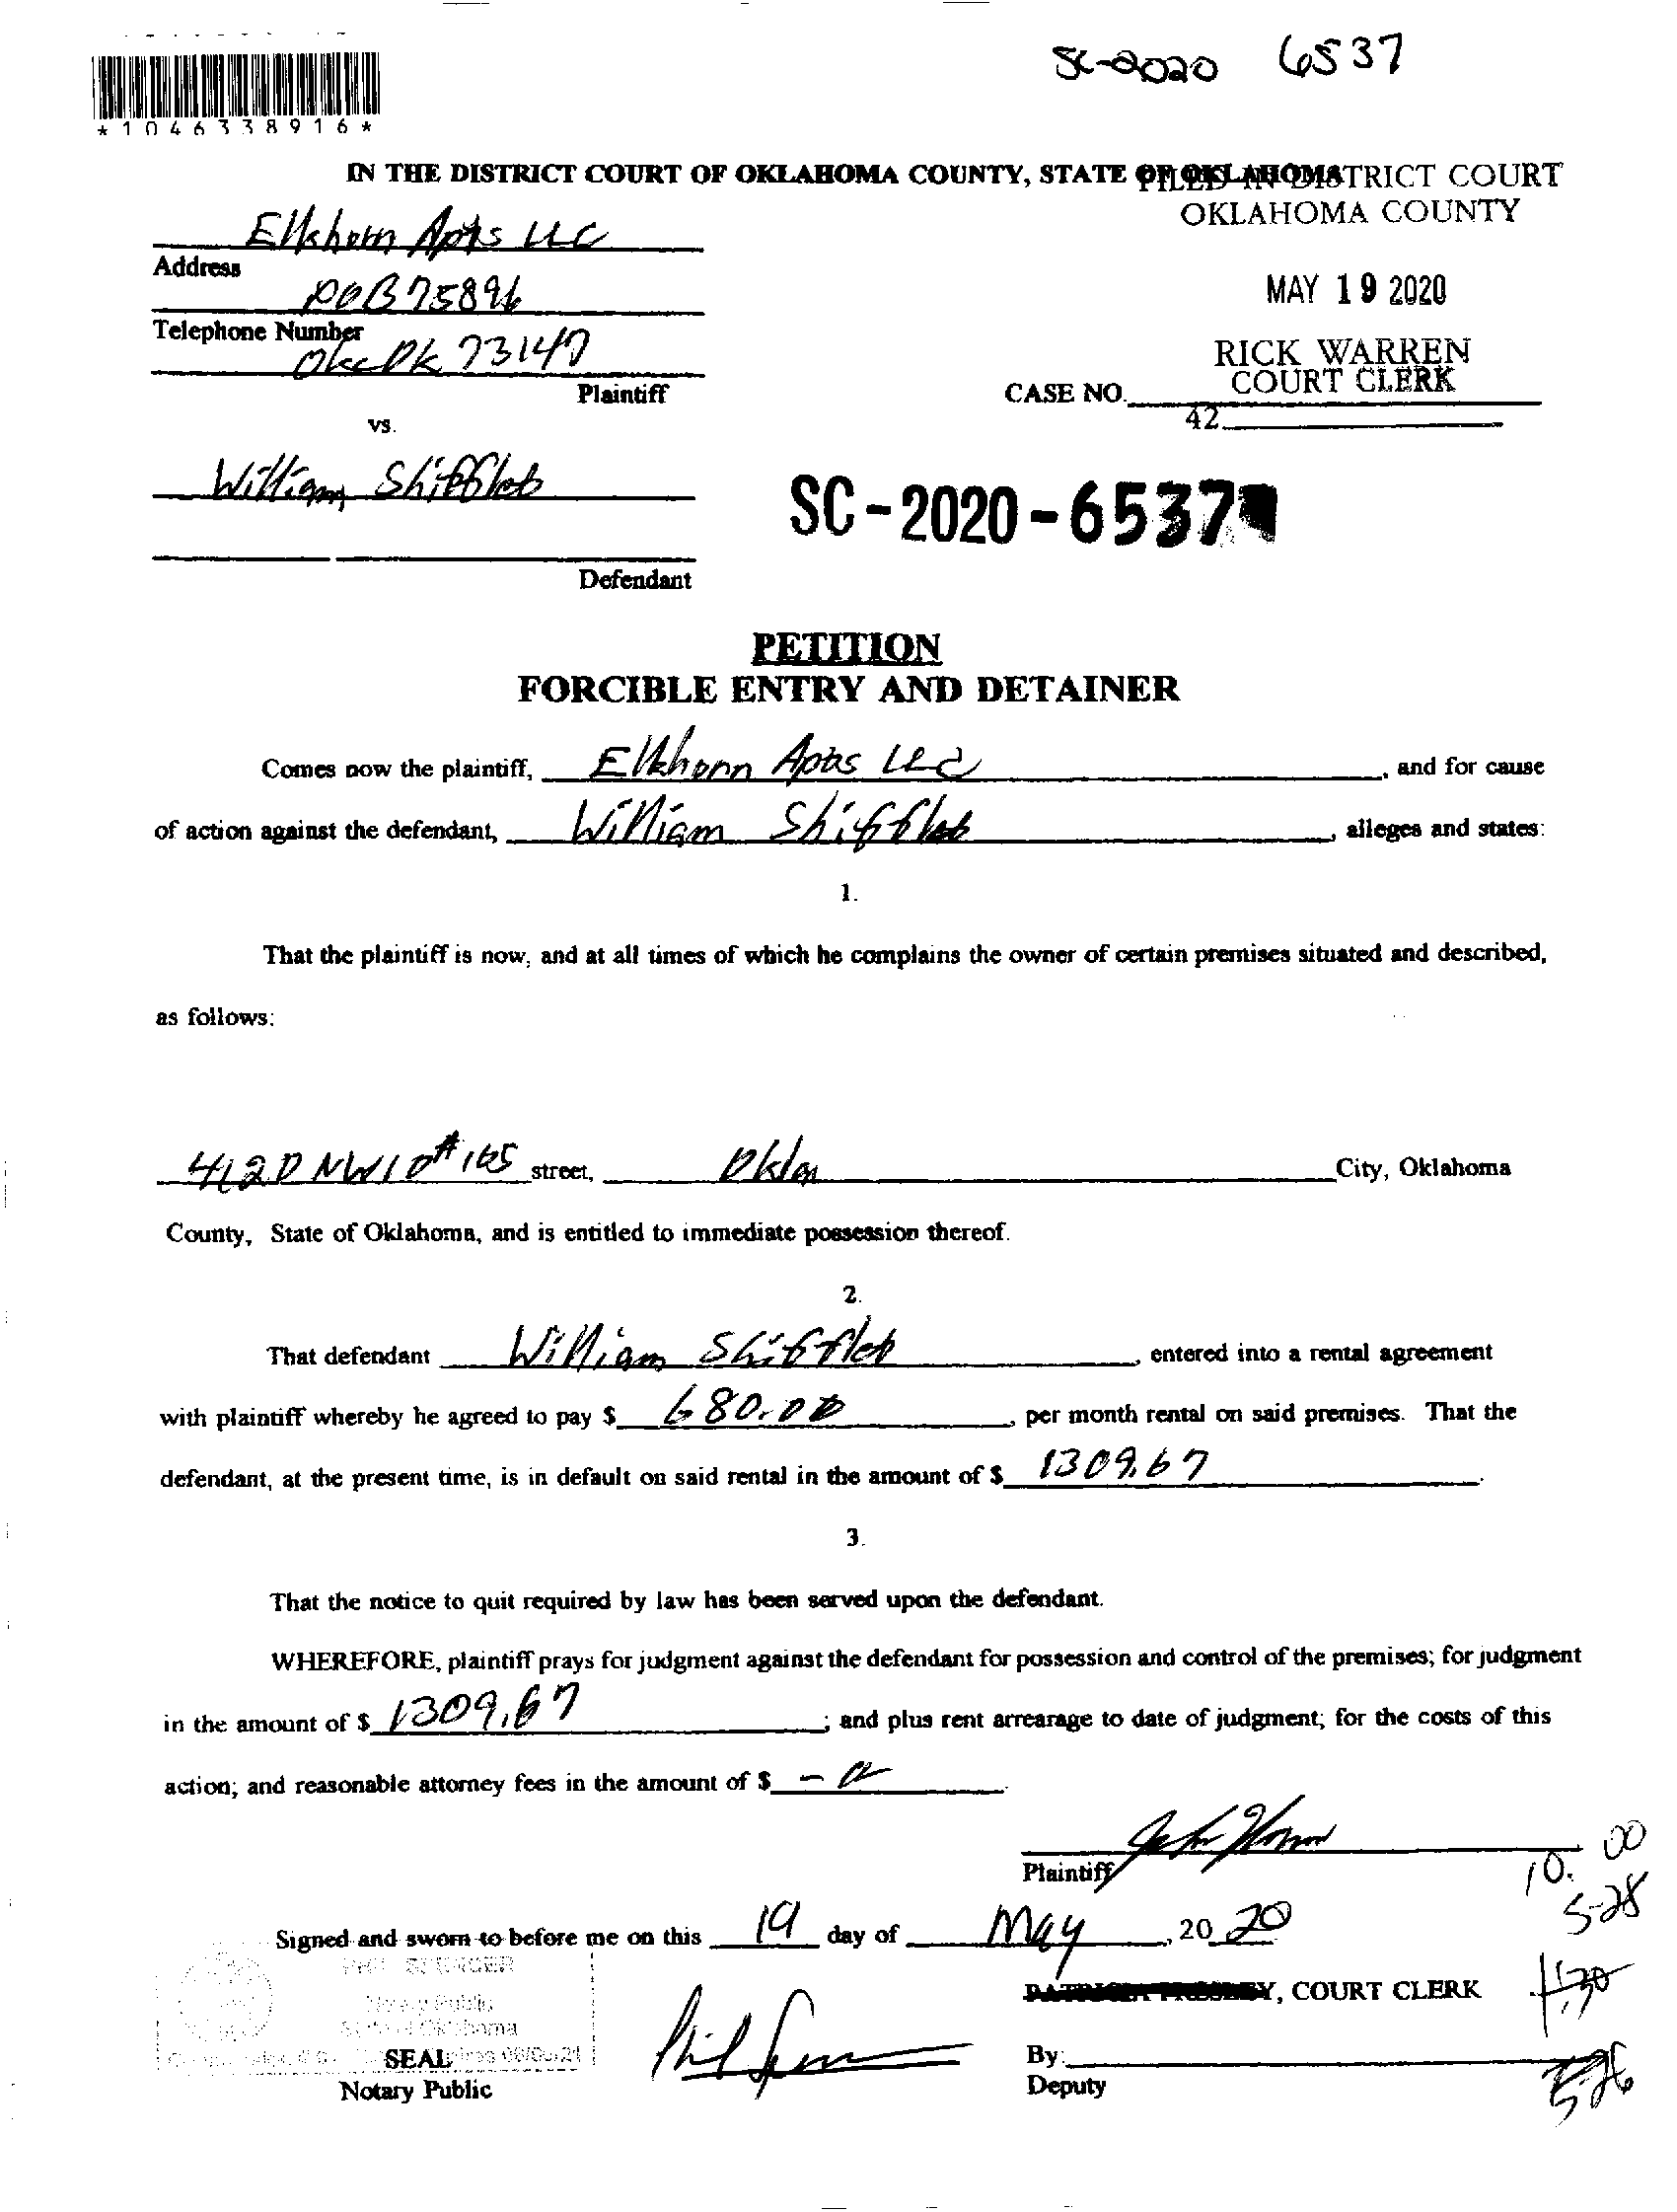 SC-2020 6537
*1046338916*
IN THE DISTRICT COURT OF OKLAHOMA COUNTY, STATE OF OKLAHOMA
FILED IN DISTRICT COURT
OKLAHOMA COUNTY
Elkhorn Apts LLC
Address
POB 75896
MAY 19 2020
Telephone Number
OKC OK 73147
RICK WARREN
COURT CLERK
Plaintiff
CASE NO.
42
vs.
William Shifflet
SC-2020-6537
Defendant
PETITION
FORCIBLE ENTRY AND DETAINER
Comes now the plaintiff, Elkhorn Apts LLC, and for cause
of action against the defendant, William Shifflet, alleges and states:
1.
That the plaintiff is now, and at all times of which he complains the owner of certain premises situated and described,
as follows:
4120 NW10 #165 street, Okla City, Oklahoma
County, State of Oklahoma, and is entitled to immediate possession thereof.
2.
That defendant William Shifflet, entered into a rental agreement
with plaintiff whereby he agreed to pay $ 680.00, per month rental on said premises. That the
defendant, at the present time, is in default on said rental in the amount of $ 1309.67.
3.
That the notice to quit required by law has been served upon the defendant.
WHEREFORE, plaintiff prays for judgment against the defendant for possession and control of the premises; for judgment
in the amount of $ 1309.67; and plus rent arrearage to date of judgment; for the costs of this
action; and reasonable attorney fees in the amount of $
Plaintiff
10.00
5-28
Signed and sworn to before me on this 19 day of May, 2020
Notary Public
, COURT CLERK
1:30
SEAL
By:
Notary Public
Deputy
5-26